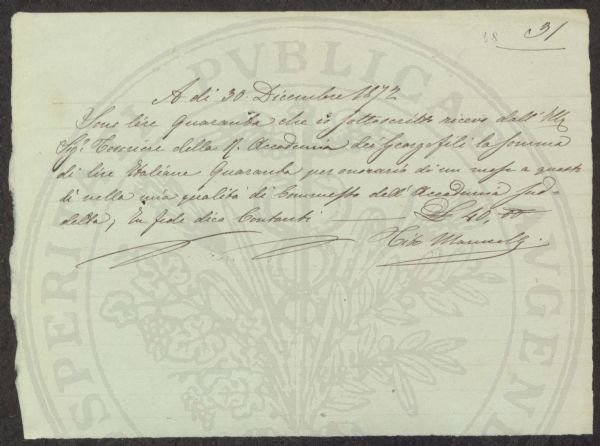 31
18
A di 30 Dicembre 1872
Sono lire Quaranta che io sottoscritto ricevo dall'Ill
Sigr Tesoriere della R. Accademia dei Georgofili la somma
di lire Italiane Quaranta per onorario di un mese a questo
dì nella mia qualità di Commesso dell'Accademia Sud-
detta, In fede dico Contanti £ 40,00
Tito
PUBLICA
PROSPERITATI AUGENDAE